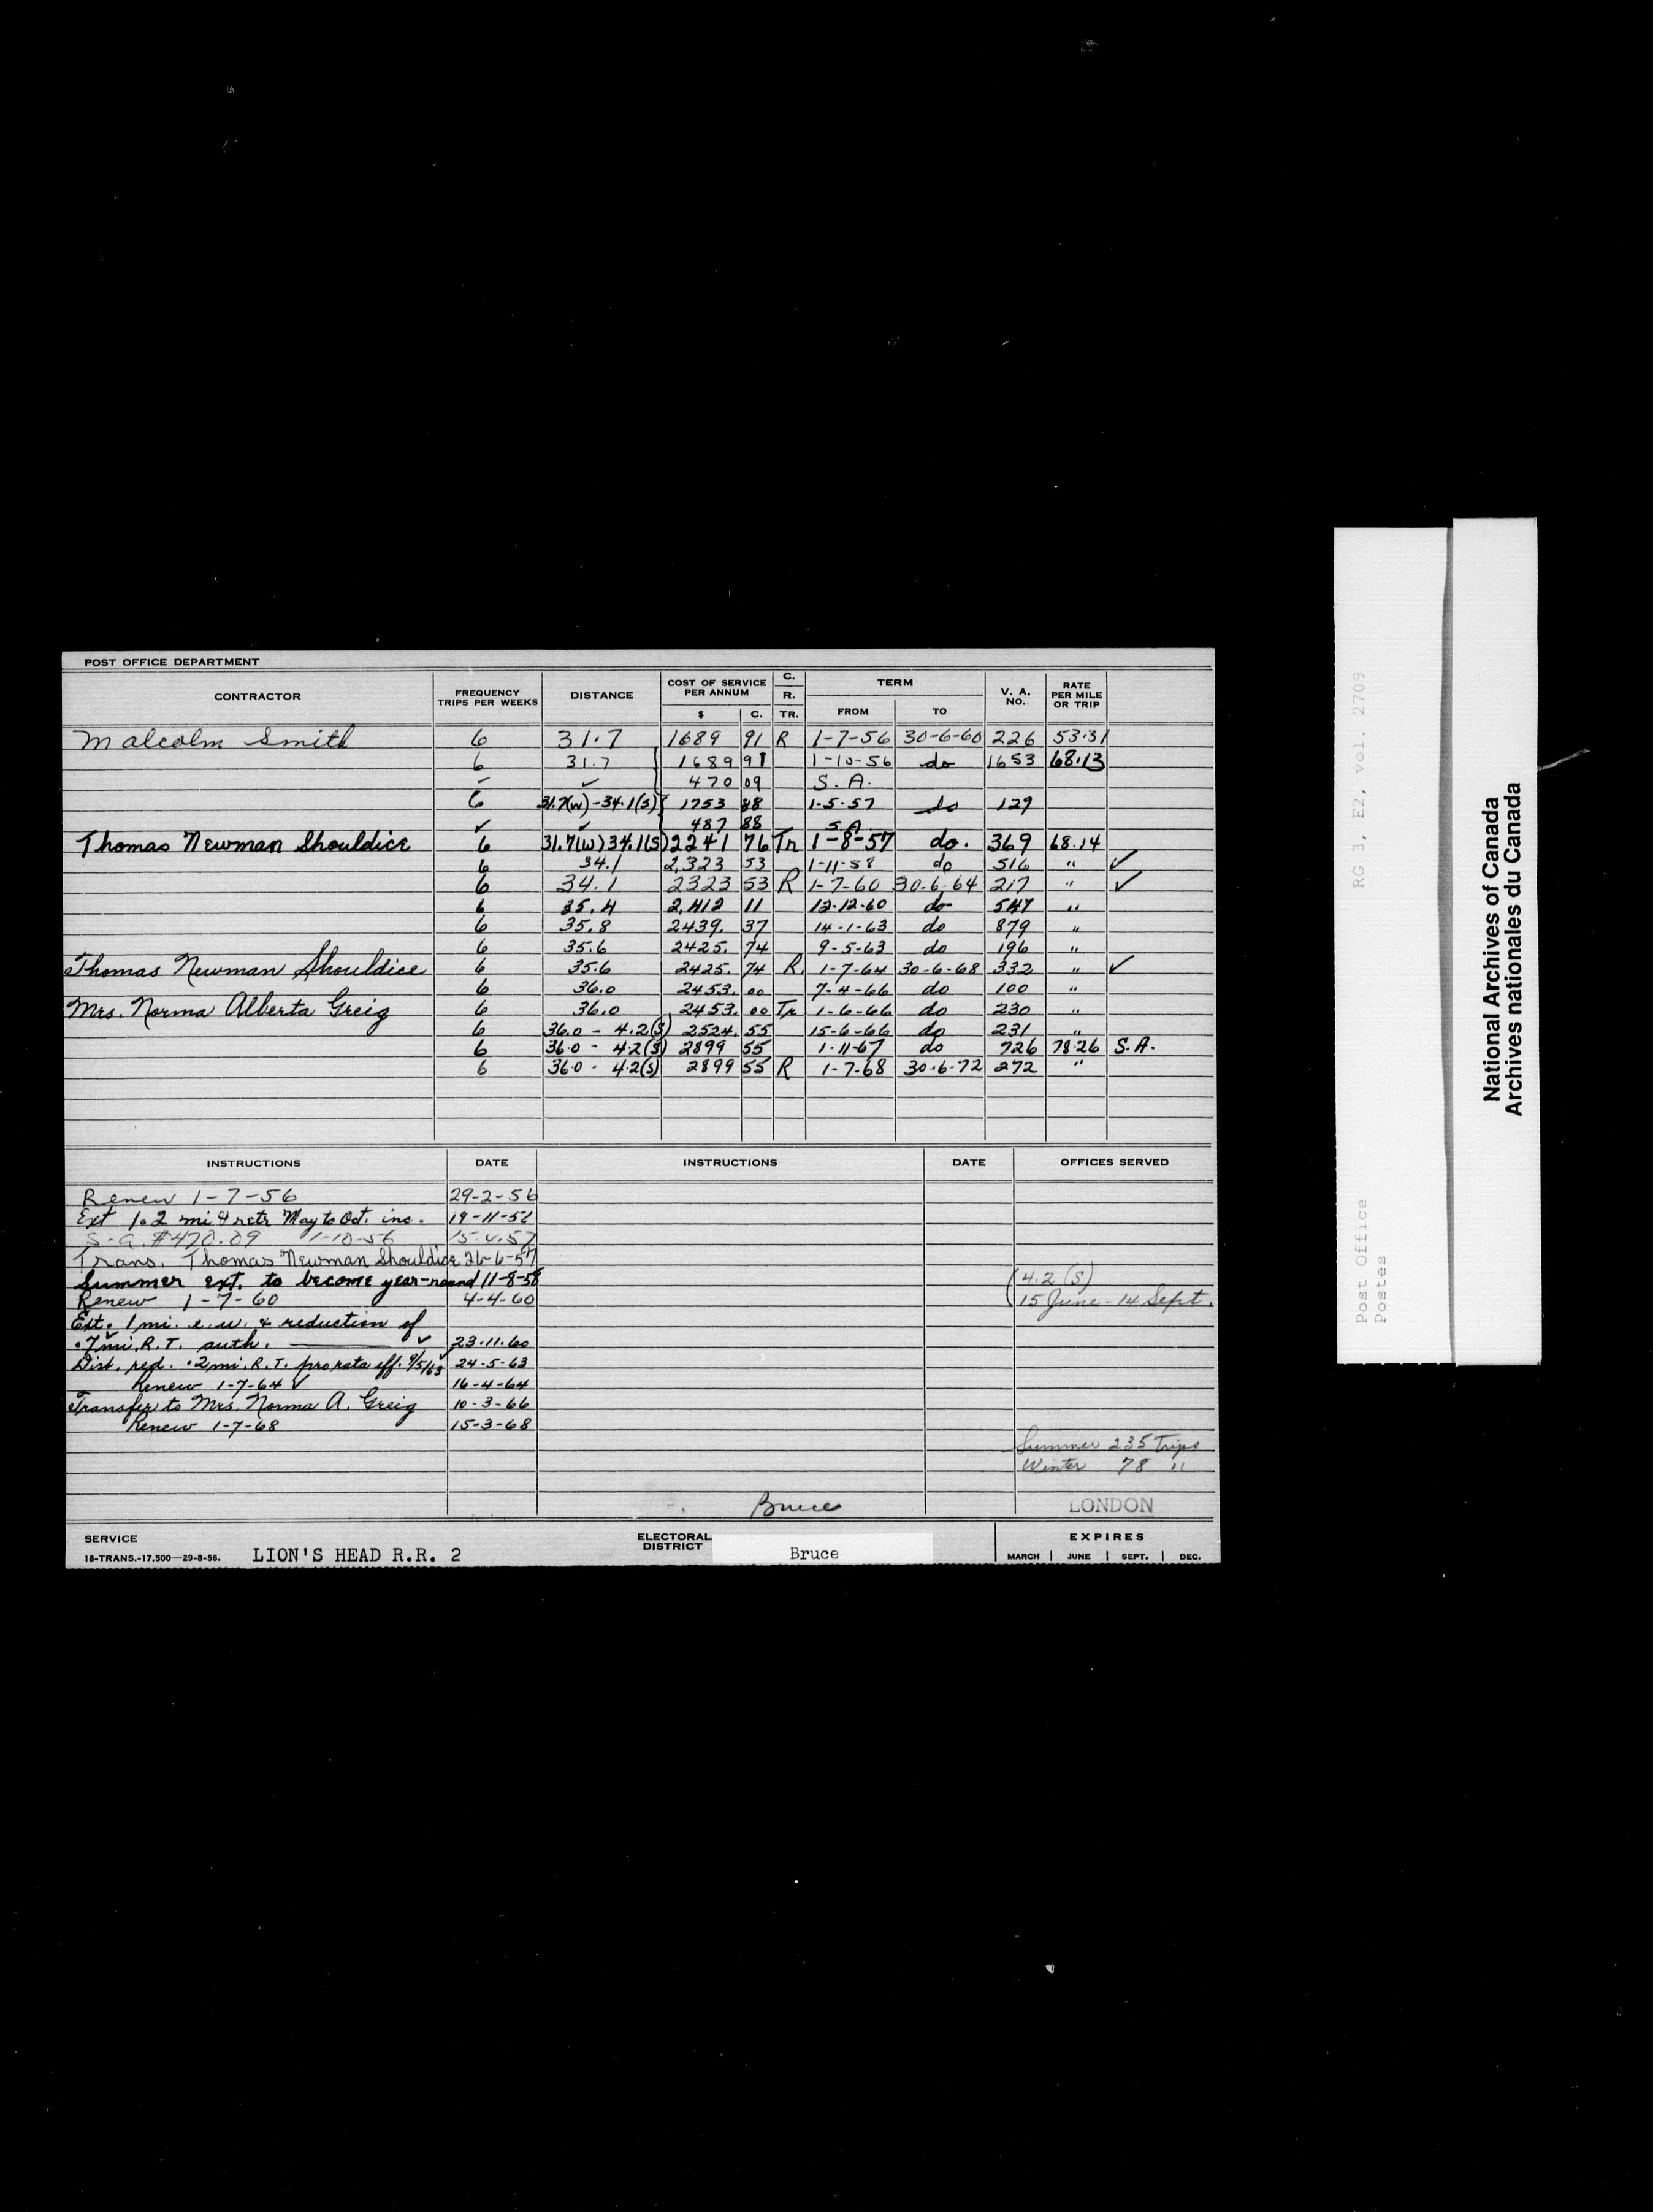 POST OFFICE DEPARTMENT
CONTRACTOR FREQUENCY TRIPS PER WEEKS DISTANCE COST OF SERVICE PER ANNUM $ C. C. R. TR. TERM FROM TO V. A. NO. RATE PER MILE OR TRIP
Malcolm Smith 6 31.7 1689 91 R 1-7-56 30-6-60 226 53.31
6 31.7 1689 91 1-10-56 do 1653 68.13
- ✓ 470 09 S. A.
6 31.7(w)-34.1(s) 1753 88 1-5-57 do 129
✓ ✓ 487 88 S.A.
Thomas Newman Shouldice 6 31.7(w) 34.1(s) 2241 76 Tr 1-8-57 do. 369 68.14
6 34.1 2,323 53 1-11-58 do 516 " ✓
6 34.1 2323 53 R 1-7-60 30-6-64 217 " ✓
6 35.4 2,412 11 12-12-60 do 547 "
6 35.8 2439. 37 14-1-63 do 879 "
6 35.6 2425. 74 9-5-63 do 196 "
Thomas Newman Shouldice 6 35.6 2425. 74 R. 1-7-64 30-6-68 332 " ✓
6 36.0 2453. 00 7-4-66 do 100 "
Mrs. Norma Alberta Greig 6 36.0 2453. 00 Tr 1-6-66 do 230 "
6 36.0 - 4.2(S) 2524. 55 15-6-66 do 231 "
6 36.0 - 4.2(S) 2899 55 1-11-67 do 726 78.26 S.A.
6 36.0 - 4.2(s) 2899 55 R 1-7-68 30-6-72 272 "
INSTRUCTIONS DATE INSTRUCTIONS DATE OFFICES SERVED
Renew 1-7-56 29-2-56
Ext 1.2 mi & retr May to Oct. inc. 19-11-56
S-A. $470.09 1-10-56 15.4.57
Trans. Thomas Newman Shouldice 26-6-57
Summer ext. to become year-round 11-8-58 4.2 (S)
Renew 1-7-60 4-4-60 15 June - 14 Sept.
Ext. 1 mi. e.w. & reduction of
.7 mi. R.T. auth. ✓ 23.11.60
Dist. red. .2 mi. R.T. pro rata eff. 9/5/63 24-5-63
Renew 1-7-64 ✓ 16-4-64
Transfer to Mrs. Norma A. Greig 10-3-66
Renew 1-7-68 15-3-68
Summer 235 Trips
Winter 78 "
Bruce LONDON
SERVICE ELECTORAL DISTRICT EXPIRES
18-TRANS.-17,500—29-8-56. LION'S HEAD R.R. 2 Bruce MARCH | JUNE | SEPT. | DEC.
RG 3, E2, vol. 2709
Post Office
Postes
National Archives of Canada
Archives nationales du Canada